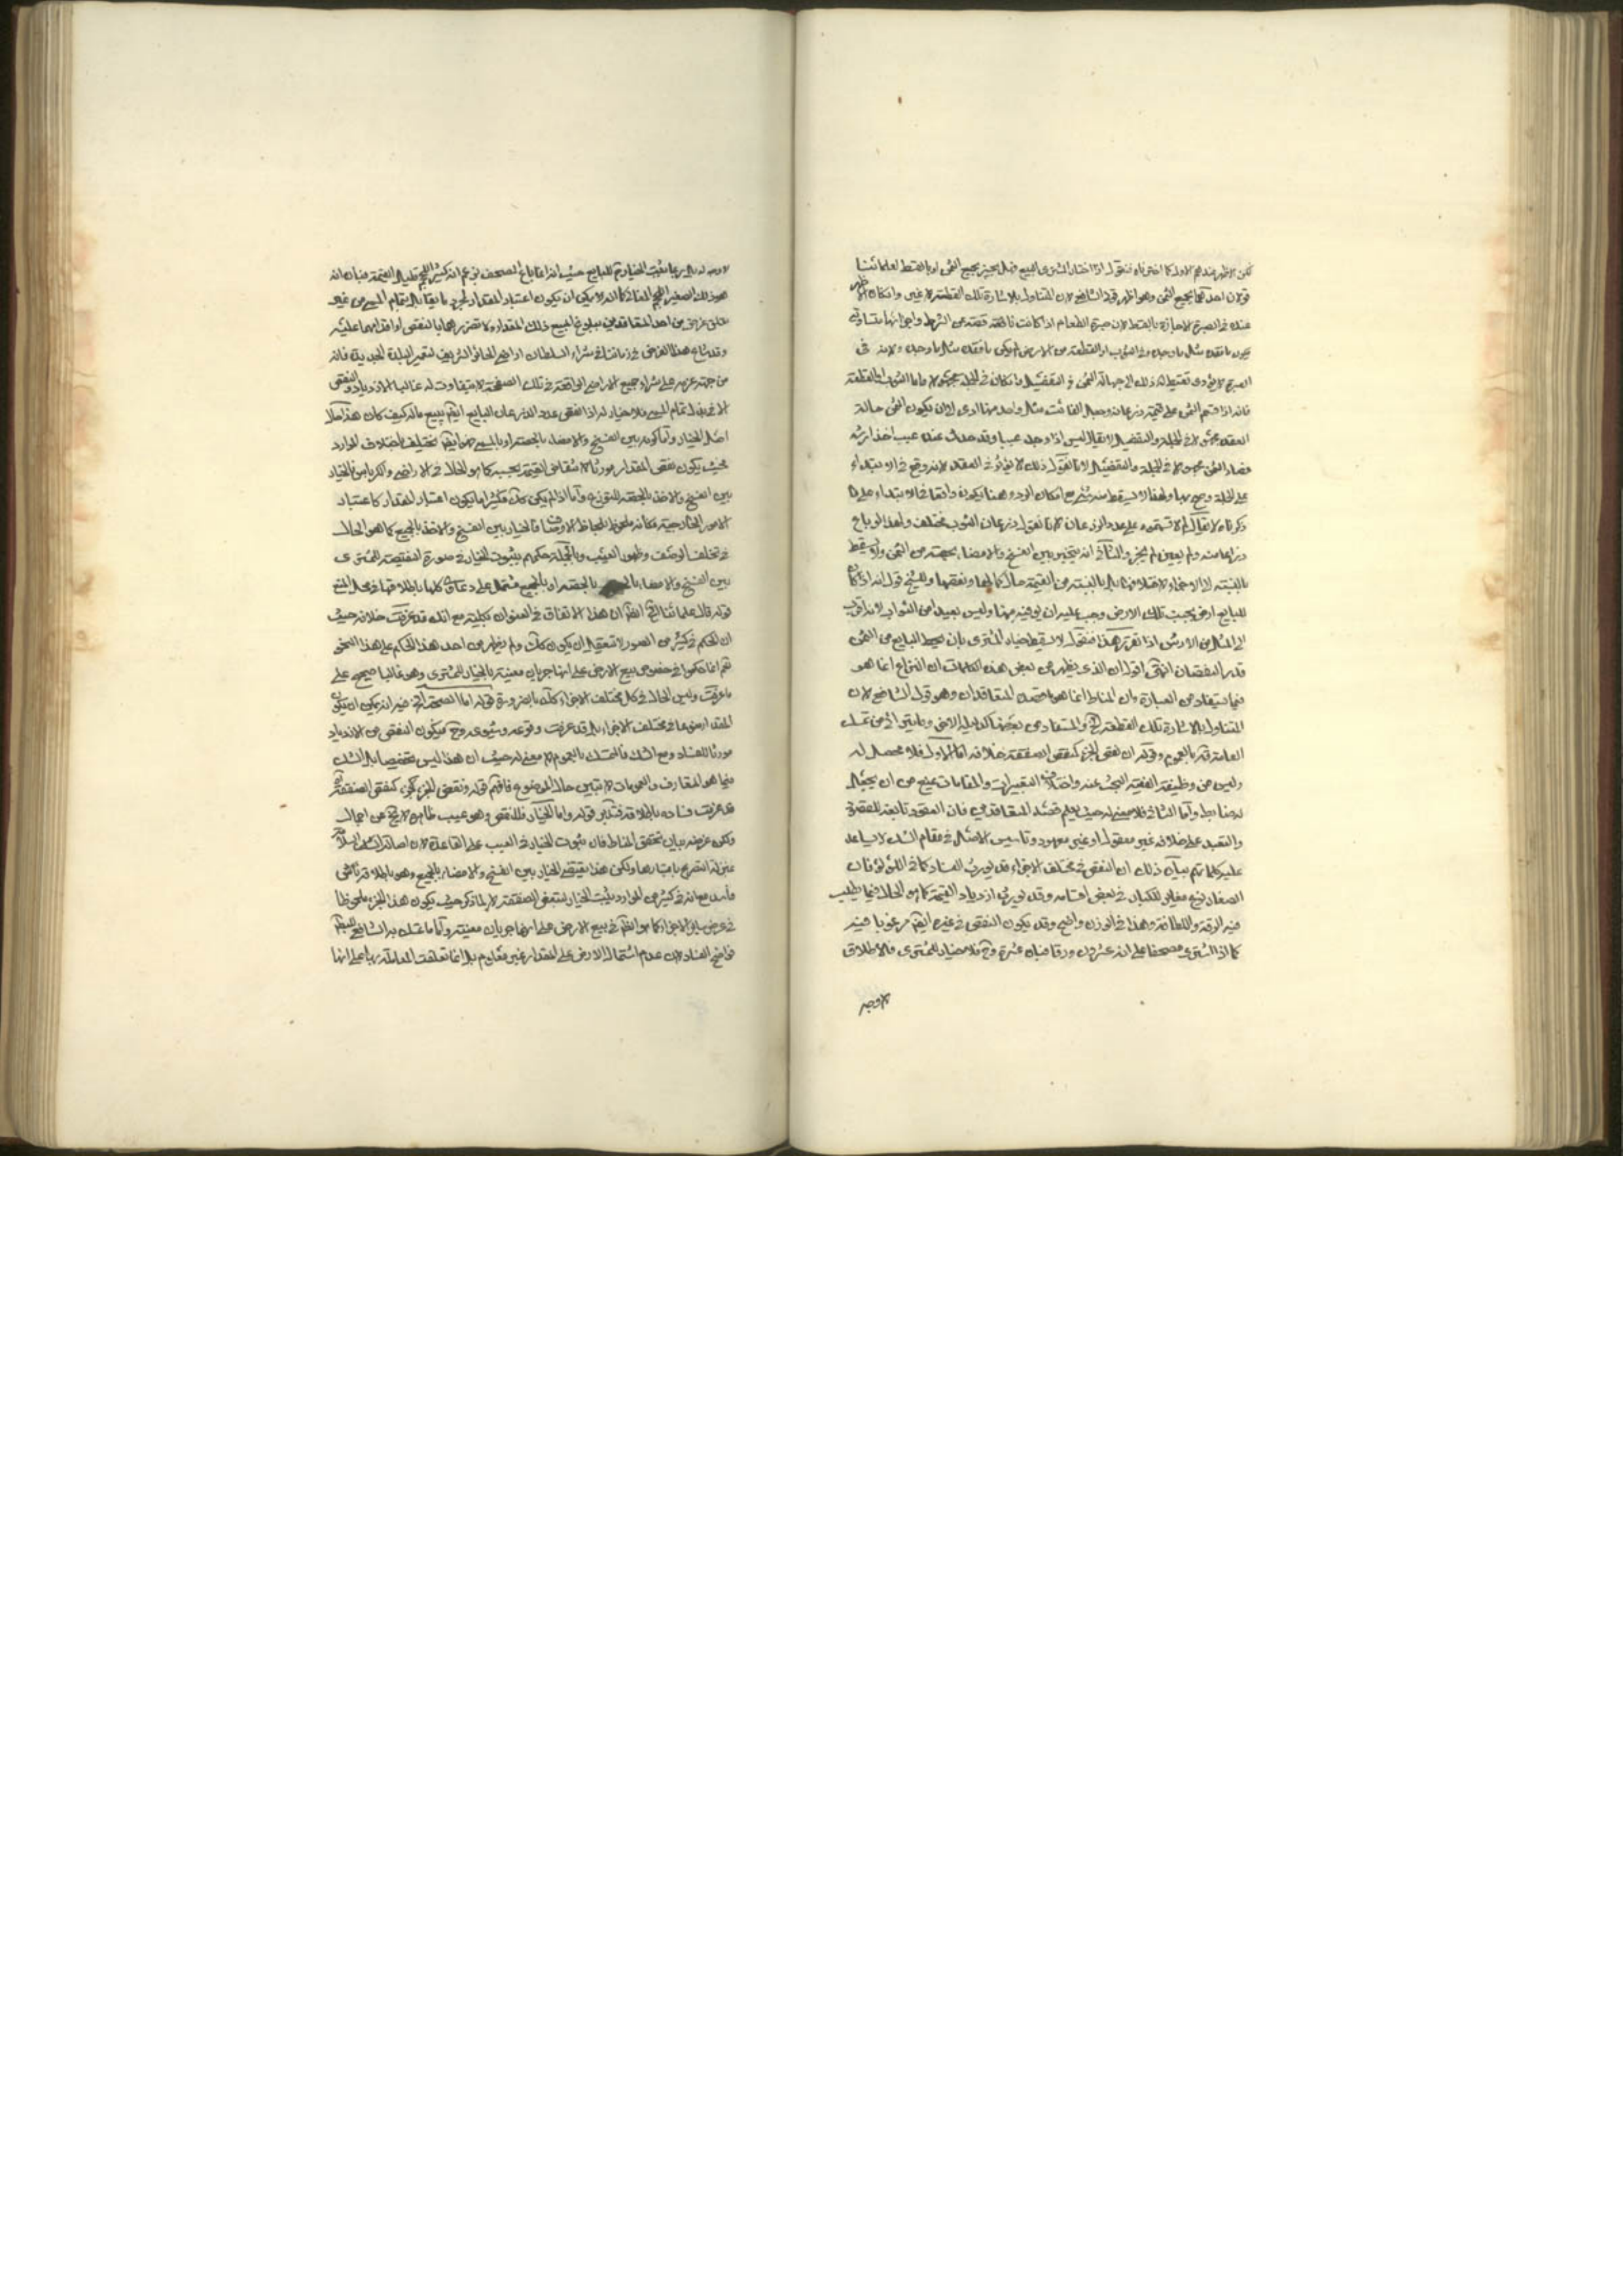 لكن الاظهر عندهم الاول كما اخترناه فنقول اذا اختار المشتري البيع فهل يجيزه بجميع الثمن او بالقسط لعلمائنا
قولان احدهما بجميع الثمن وهو اظهر قولي الشافعي لان المتناول بالاشارة تلك القطعة لا غير وان كان
عنده في الصبرة الاجازة بالقسط لان صبرة الطعام اذا كانت ناقصة قصته من الشرط واجزائها متساوية
يكون ما فقده مثل ما وجده وفي الثوب او القطعة من الارض لم يكن ما فقده مثل ما وجده ولانه في
الصبرة لا يؤدي تقسيطه ذلك الى جهالة الثمن في التفصيل وان كان في الجملة مجهولا واما الثوب او القطعة
فانه اذا قسم الثمن على قيمة ذرعانه وجعل الفائت مثل واحد منها ادى لان يكون الثمن حالة
العقد مجهولا في الجملة والتفصيل لا يقال اليس اذا وجد عيبا وقد حدث عنده عيب اخذ ارشه
فصار الثمن مجهولا في الجملة والتفصيل لانا نقول ذلك لا يؤثر في العقد لانه وقع في الابتداء
على الجملة وصح بها ولهذا لا يسقط منه شيء مع امكان الرد وهنا يكون واقعا في الابتداء على ما
ذكرناه لا يقال لم لا قسمتموه على عدد الذرعان لانا نقول ذرعان الثوب مختلفة ولهذا لو باع
ذراعا منه ولم يعين لم يجز والثاني انه يتخير بين الفسخ والامضاء بحصته من الثمن
بالنسبة الى الاجزاء لاختلافها بل بالنسبة من القيمة حال كمالها ونقصها وللشيخ قول انه اذا كان
للبايع ارض بجنب تلك الارض وجب عليه ان يوفيه منها وليس بعيدا من الصواب لانه اقرب
الى المثل من الارش اذا تقرر هذا فنقول لا يسقط خيار المشتري بان يحط البايع من الثمن
قدر النقصان انتهى اقول ان الذي يظهر من بعض هذه الكلمات ان النزاع انما هو
فيما يستفاد من العبارة وان المناط انما هو ما قصده المتعاقدان وهو قول الشافعي لان
المتناول بالاشارة تلك القطعة الخ والمستفاد من بعضها
العامة قد بالعموم وقوله ان نقص الجزء كنقص الصفقة خلافه اما الاول فلا محصل له
وليس من وظيفة الفقيه البحث عنه واختلاف التعبيرات والمقامات يمنع من ان يجعل
له ضابط واما الثاني فلا معنى له حيث يعلم قصد المتعاقدين فان العقود تابعة للقصود
والتعبد على خلافه غير معقول او غير معهود وتاسيس الاصل في مقام الشك لا يساعد
عليه كلماتهم بيان ذلك ان النقص في مختلف الاجزاء قد يورث الفساد كما في اللؤلؤ فان
الصغار نوع مغاير للكبار في بعض اقسامه وقد يورث ازدياد القيمة كما هو الحال فيما يطلب
فيه الرقة واللطافة وهذا في الوزن واضح وقد يكون النقص في غيره ايضا مرغوبا فيه
كما اذا اشترى مصحفا على انه عشرون ورقا فبان عشرة وح فلا خيار للمشتري فالاطلاق
لا وجه
لا وجه له بل ربما يثبت الخيار ح للبايع حيث انه انما باع المصحف بزعم انه كبير الحجم قليل القيمة فبان انه
هو ذلك الصغير الحجم الغالي كما انه لا يمكن ان يكون اعتبار المقدار لمجرد ما يقابل بتمام المبيع من غير
تعلق غرض من احد المتعاقدين ببلوغ المبيع ذلك المقدار ولا تضرر احدهما بالنقص اذا قدما عليه
وقد شاع هذا الغرض في زماننا في شراء السلطان اراضي الحائر الشريف لتعمير البلدة الجديدة فانه
من جهة عزمه على شراء جميع الاراضي الواقعة في تلك الصفحة لا يتفاوت له غالبا الازدياد والنقص
الا في بذل تمام المبيع فلا خيار له اذا نقص عدد الذرعان البايع ايضا يبيع ماله كيف كان هذا كله
اصل الخيار واما كونه بين الفسخ والامضاء بالحصة او بالمسمى فهو ايضا مختلف باختلاف الموارد
بحيث يكون نقص المقدار مورثا لانتقاص القيمة بحسبه كما هو الحال في الاراضي والكرباس فالخيار
بين الفسخ والاخذ بالحصة للتوزيع واما اذا لم يكن كك فكثيرا ما يكون اعتبار المقدار كاعتبار
الامور الخارجية فكانه ملحوظ بلحاظ الاوصاف فالخيار بين الفسخ والاخذ بالجميع كما هو الحال
في تخلف الوصف وظهور العيب وبالجملة حكمهم بثبوت الخيار في صورة النقيصة للمشتري
بين الفسخ والامضاء بالحصة او بالجميع مشتمل على دعاوي كلها باطلاقها في محل المنع
قوله قال علمائنا الخ انظر ان هذا الاتفاق في العنوان بكليته مع انك قد عرفت خلافه حيث
ان الحكم في كثير من الصور لا يتعقل ان يكون كك ولم يظهر من احد هذا الحكم على هذا النحو
نعم انما حكموا في خصوص بيع الارض على انها جربان معينة بالخيار للمشتري وهو غالبا صحيح على
ما عرفت وليس الحال في كل مختلف الاجزاء كك بالضرورة قوله اما الصحة الخ فيه انه يمكن ان يكون
المقدار منوعا في مختلف الاجزاء بل قد عرفت وقوعه وشيوعه وح فيكون النقص من الازدياد
مورثا للفساد ومع الشك فالتمسك بالعموم لا معنى له حيث ان هذا ليس تخصيصا بل الشك
فيما هو المتعارف والعمومات لا تبين حال الموضوع فافهم قوله ونقص الجزء كنقص الصفقة
قد عرفت فساده باطلاقه فتدبر قوله واما الخيار فللنقص وهو عيب ظاهره لا يخ من اجمال
ولكن غرضه بيان تحقق المناط فان ثبوت الخيار في العيب على القاعدة لان اصالة السلامة
بمنزلة التصريح باعتبارها ولكن هذا يقتضي الخيار بين الفسخ والامضاء بالجميع وهو باطلاقه ناش
فاسد مع انه في كثير من الموارد يثبت الخيار لتبعض الصفقة لا لما ذكر حيث يكون هذا الجزء ملحوظا
في عرض ساير الاجزاء كما هو الظاهر في بيع الارض على انها جربان معينة واما ما تمسك به الشافعي للبطلان
فواضح الفساد لان عدم اشتمال الارض على المقدار غير معلوم بل انما تعلقت المعاملة بها على انها